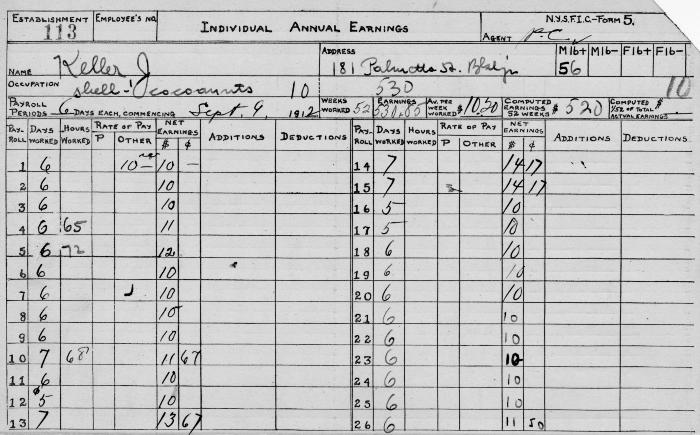 ESTABLISHMENT 113 EMPLOYEE'S NO. INDIVIDUAL ANNUAL EARNINGS N.Y.S.F.I.C.-FORM 5.
AGENT P.C.
NAME Keller J ADDRESS 181 Palmetto St. Bklyn M16+ M16- F16+ F16-
56
OCCUPATION shell - cocoanuts 10 530 10
PAYROLL PERIODS 6 DAYS EACH, COMMENCING Sept. 9 1912 WEEKS WORKED 52 EARNINGS AV. PER WEEK WORKED $ 10.20 COMPUTED EARNINGS 52 WEEKS $ 520 COMPUTED 1/52 OF TOTAL ACTUAL EARNINGS $
PAY-ROLL DAYS WORKED HOURS WORKED RATE OF PAY P OTHER NET EARNINGS $ ¢ ADDITIONS DEDUCTIONS PAY-ROLL DAYS WORKED HOURS WORKED RATE OF PAY P OTHER NET EARNINGS $ ¢ ADDITIONS DEDUCTIONS
1 6 10- 10 - 14 7 14 17
2 6 10 15 7 14 17
3 6 10 16 5 10
4 6 65 11 17 5 10
5 6 72 12 18 6 10
6 6 10 19 6 10
7 6 10 20 6 10
8 6 10 21 6 10
9 6 10 22 6 10
10 7 68 11 67 23 6 10
11 6 10 24 6 10
12 5 10 25 6 10
13 7 13 67 26 6 11 50